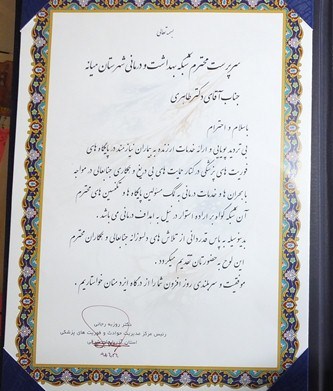 بسمه تعالی
سرپرست محترم شبکه بهداشت و درمانی شهرستان میانه
جناب آقای دکتر طاهری
با سلام و احترام
بی تردید پویایی و ارائه خدمات ارزنده به بیماران نیازمند در پایگاه های
فوریت های پزشکی در کنار حمایت های بی دریغ و همکاری جنابعالی در مواجهه
با بحران ها و خدمات درمانی به کمک مسئولین پایگاه ها و تکنسین های محترم
آن شبکه گواه بر اراده استوار در نیل به اهداف درمانی می باشد.
بدینوسیله به پاس قدردانی از تلاش های دلسوزانه جنابعالی و همکاران محترم
این لوح به حضورتان تقدیم میگردد.
موفقیت و سربلندی روز افزون شما را از درگاه ایزد منان خواستاریم.
دکتر روزبه رجائی
رئیس مرکز مدیریت حوادث و فوریت های پزشکی
استان آذربایجان شرقی